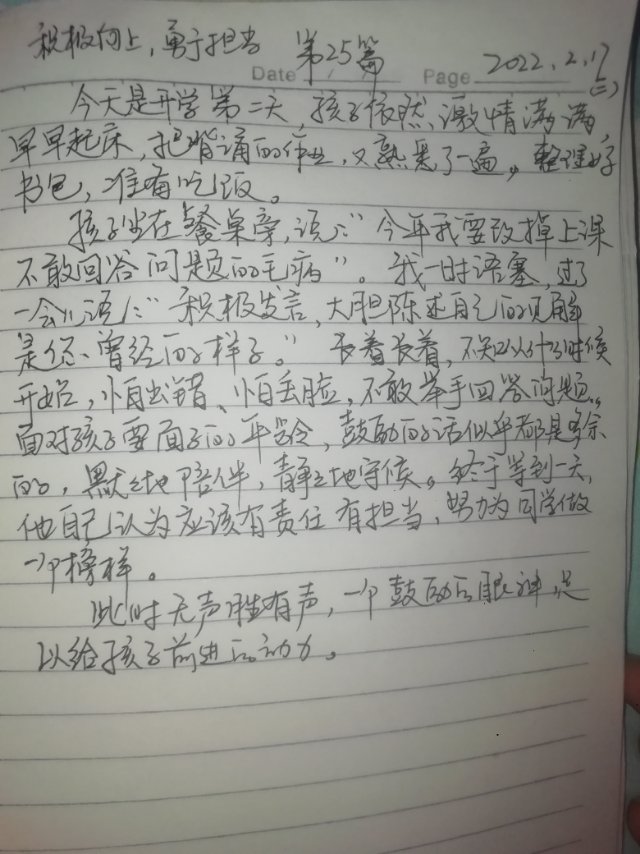 积极向上，勇于担当 第25篇
Date / / Page 2022.2.17
(二)
今天是开学第二天，孩子依然激情满满，
早早起床，把背诵的作业，又熟悉了一遍。整理好
书包，准备吃饭。
孩子坐在餐桌旁，说：“今年我要改掉上课
不敢回答问题的毛病”。我一时语塞，过了
一会儿说：“积极发言，大胆陈述自己的见解
是你曾经的样子。”长着长着，不知从什么时候
开始，怕出错、怕丢脸，不敢举手回答问题。
面对孩子要面子的年龄，鼓励的话似乎都是多余
的，默默地陪伴，静静地守候。终于等到一天，
他自己认为应该有责任有担当，努力为同学做
一个榜样。
此时无声胜有声，一个鼓励的眼神，足
以给孩子前进的动力。